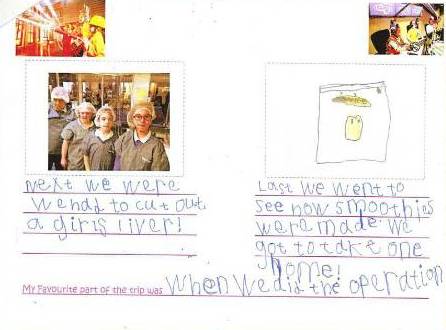 Next we were
wendd to cut out
a girls liver!
Last we went to
see how smoothies
were made. We
got to take one
home!
My Favourite part of the trip was When we did the operation